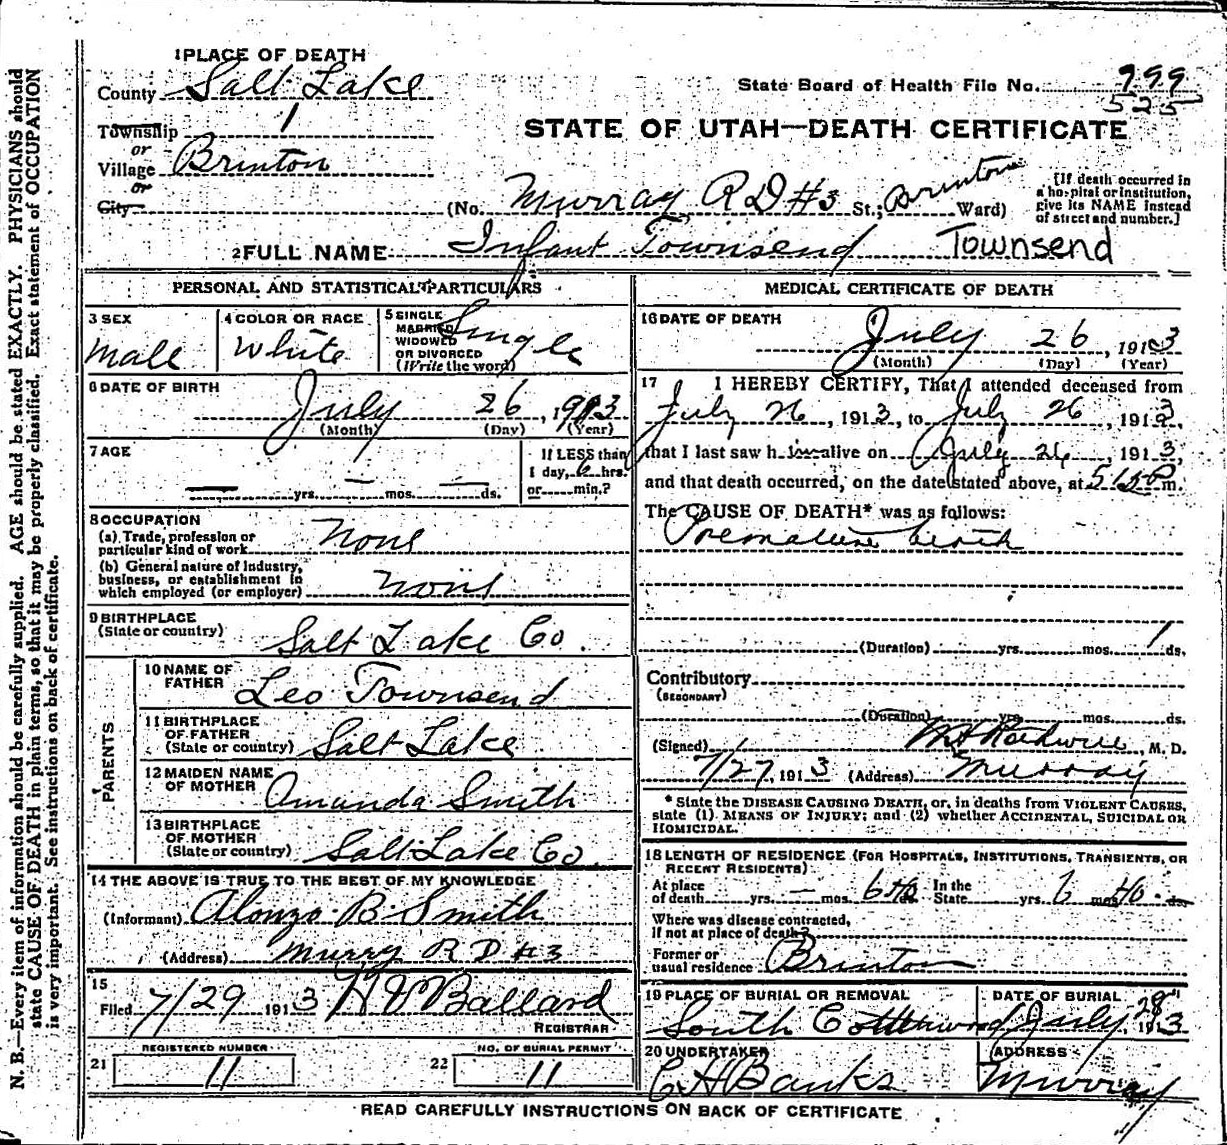 1 PLACE OF DEATH
County Salt Lake
State Board of Health File No. 799
525
Township 1
or
STATE OF UTAH—DEATH CERTIFICATE
Village Brinton
or
City
(No. Murray R D #3 St.; Brinton Ward)
[If death occurred in
a hospital or institution,
give its NAME instead
of street and number.]
2 FULL NAME Infant Townsend Townsend
PERSONAL AND STATISTICAL PARTICULARS
3 SEX
Male
4 COLOR OR RACE
White
5 SINGLE
MARRIED
WIDOWED
OR DIVORCED
(Write the word)
Single
6 DATE OF BIRTH
July 26, 1913
(Month) (Day) (Year)
7 AGE
— yrs. — mos. — ds.
If LESS than
1 day, 6 hrs.
or min.?
8 OCCUPATION
(a) Trade, profession or
particular kind of work None
(b) General nature of industry,
business, or establishment in
which employed (or employer) None
9 BIRTHPLACE
(State or country) Salt Lake Co.
PARENTS
10 NAME OF
FATHER Leo Townsend
11 BIRTHPLACE
OF FATHER
(State or country) Salt Lake
12 MAIDEN NAME
OF MOTHER Amanda Smith
13 BIRTHPLACE
OF MOTHER
(State or country) Salt Lake Co.
14 THE ABOVE IS TRUE TO THE BEST OF MY KNOWLEDGE
(Informant) Alonzo B. Smith
(Address) Murry R D #3
15
Filed 7/29 1913 H V Ballard
REGISTRAR
21 REGISTERED NUMBER
11
22 NO. OF BURIAL PERMIT
11
MEDICAL CERTIFICATE OF DEATH
16 DATE OF DEATH
July 26, 1913
(Month) (Day) (Year)
17 I HEREBY CERTIFY, That I attended deceased from
July 26, 1913, to July 26, 1913,
that I last saw him alive on July 26, 1913,
and that death occurred, on the date stated above, at m.
The CAUSE OF DEATH* was as follows:
Premature birth
(Duration) yrs. mos. 1 ds.
Contributory
(SECONDARY)
(Duration) yrs. mos. ds.
(Signed) Rockwell, M. D.
7/27, 1913 (Address) Murray
* State the DISEASE CAUSING DEATH, or, in deaths from VIOLENT CAUSES,
state (1) MEANS OF INJURY; and (2) whether ACCIDENTAL, SUICIDAL OR
HOMICIDAL.
18 LENGTH OF RESIDENCE (FOR HOSPITALS, INSTITUTIONS, TRANSIENTS, OR
RECENT RESIDENTS)
At place
of death yrs. — mos. 6 In the
State yrs. 6 mos. ds.
Where was disease contracted,
if not at place of death?
Former or
usual residence Brinton
19 PLACE OF BURIAL OR REMOVAL
South Cottonwood
DATE OF BURIAL
July 28, 1913
20 UNDERTAKER
C H Banks
ADDRESS
Murray
READ CAREFULLY INSTRUCTIONS ON BACK OF CERTIFICATE
N. B.—Every item of information should be carefully supplied. AGE should be stated EXACTLY. PHYSICIANS should
state CAUSE OF DEATH in plain terms, so that it may be properly classified. Exact statement of OCCUPATION
is very important. See instructions on back of certificate.